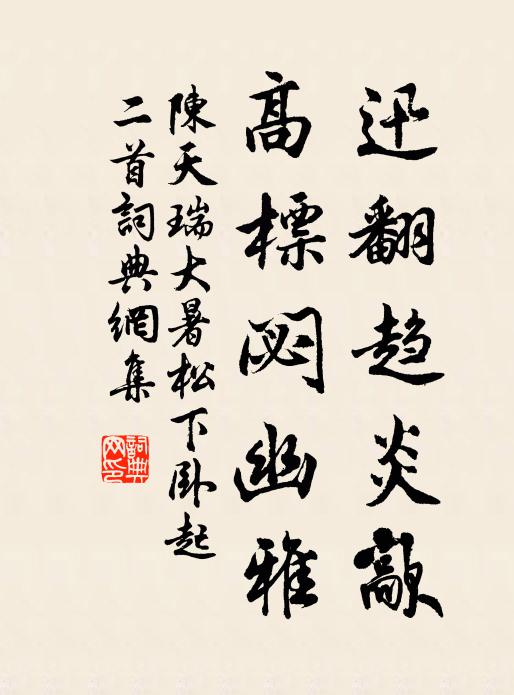 迅翻趋炎歊
高標閟幽雅
陳天瑞大暑松下卧起
二首詞典網集
詞典网印